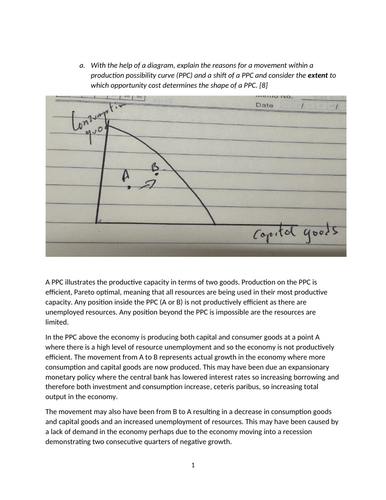 a. With the help of a diagram, explain the reasons for a movement within a
production possibility curve (PPC) and a shift of a PPC and consider the extent to
which opportunity cost determines the shape of a PPC. [8]
Date / /
Consumption
good
A
B
Capital goods
A PPC illustrates the productive capacity in terms of two goods. Production on the PPC is
efficient, Pareto optimal, meaning that all resources are being used in their most productive
capacity. Any position inside the PPC (A or B) is not productively efficient as there are
unemployed resources. Any position beyond the PPC is impossible are the resources are
limited.
In the PPC above the economy is producing both capital and consumer goods at a point A
where there is a high level of resource unemployment and so the economy is not productively
efficient. The movement from A to B represents actual growth in the economy where more
consumption and capital goods are now produced. This may have been due an expansionary
monetary policy where the central bank has lowered interest rates so increasing borrowing and
therefore both investment and consumption increase, ceteris paribus, so increasing total
output in the economy.
The movement may also have been from B to A resulting in a decrease in consumption goods
and capital goods and an increased unemployment of resources. This may have been caused by
a lack of demand in the economy perhaps due to the economy moving into a recession
demonstrating two consecutive quarters of negative growth.
1